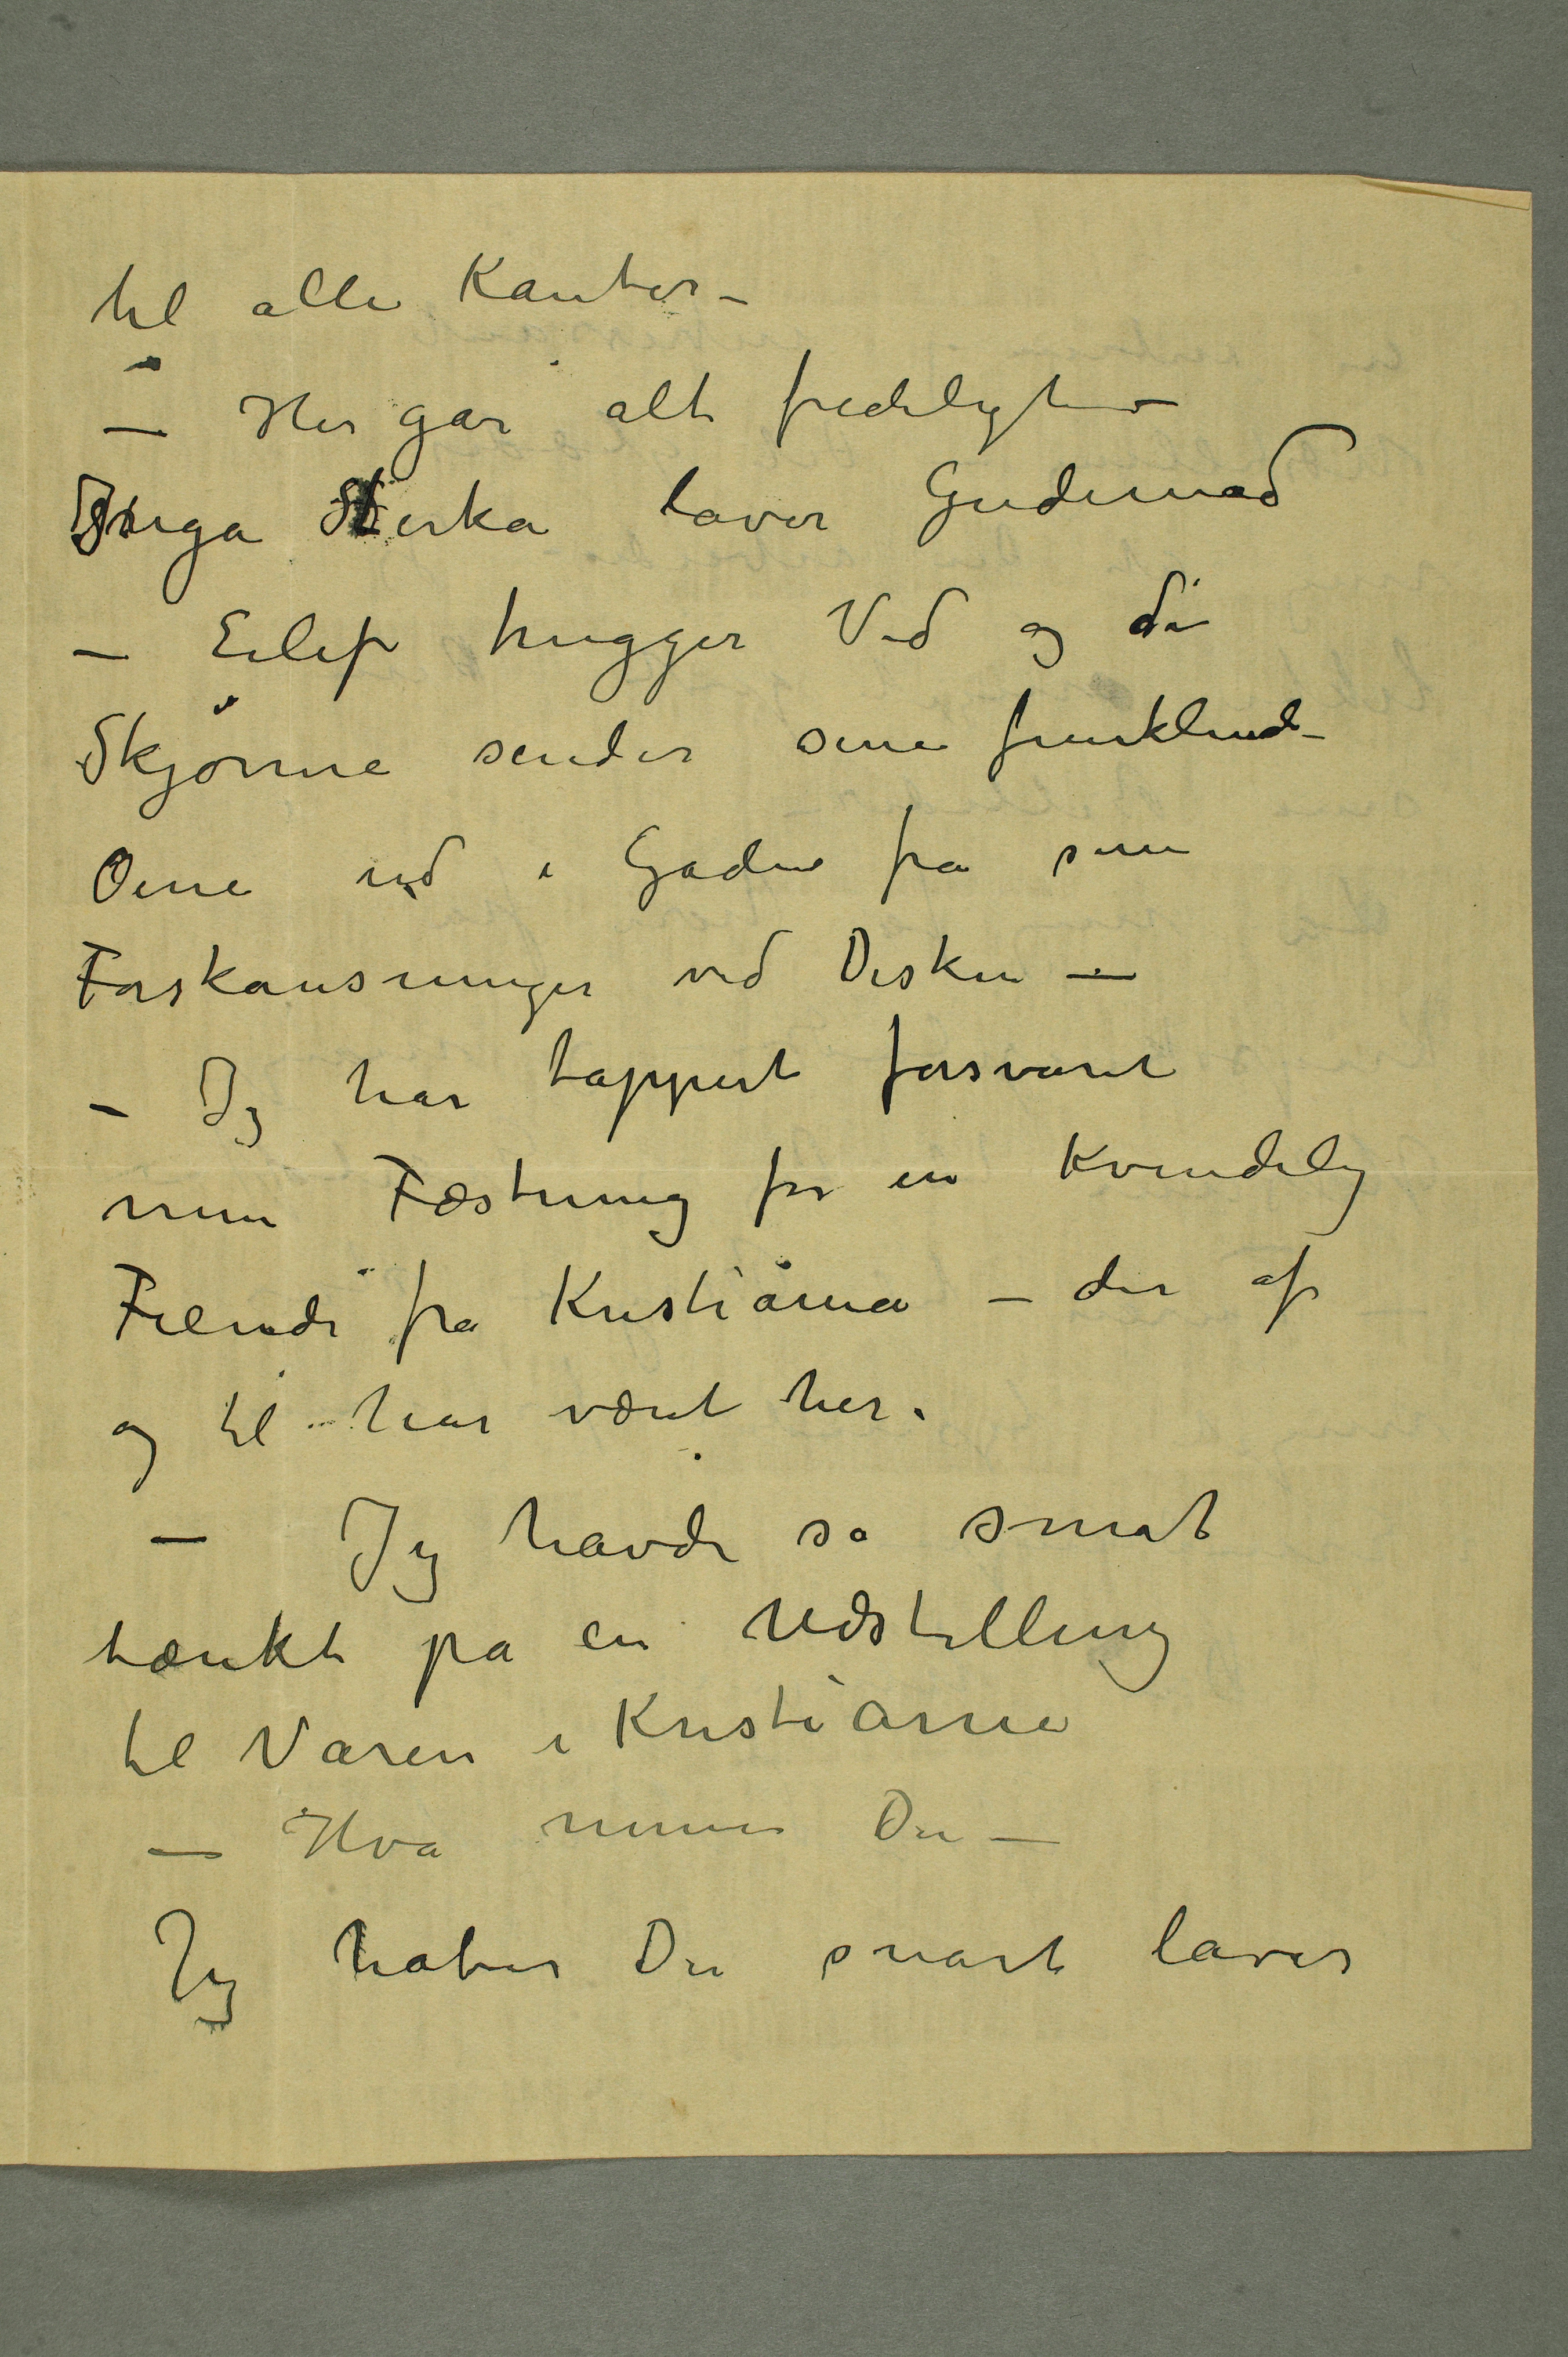 til alle Kanter –
– Her går alt fredeligt –
Inga Sterka laver Gudemad
– Eilef hugger Ved og di
Skjønne sender sine funklende
Øine ud i Gaden fra sine
Forskansninger ved Disken –
– Jeg har tappert forsvaret
min Fæstning for en Kvindelig
Fiende fra Kristiania – der af
og til har været her.
– Jeg havde så småt
tænkt på en Udstilling
til Våren i Kristiania
– Hva mener Du –
Jeg håber Du snart laver